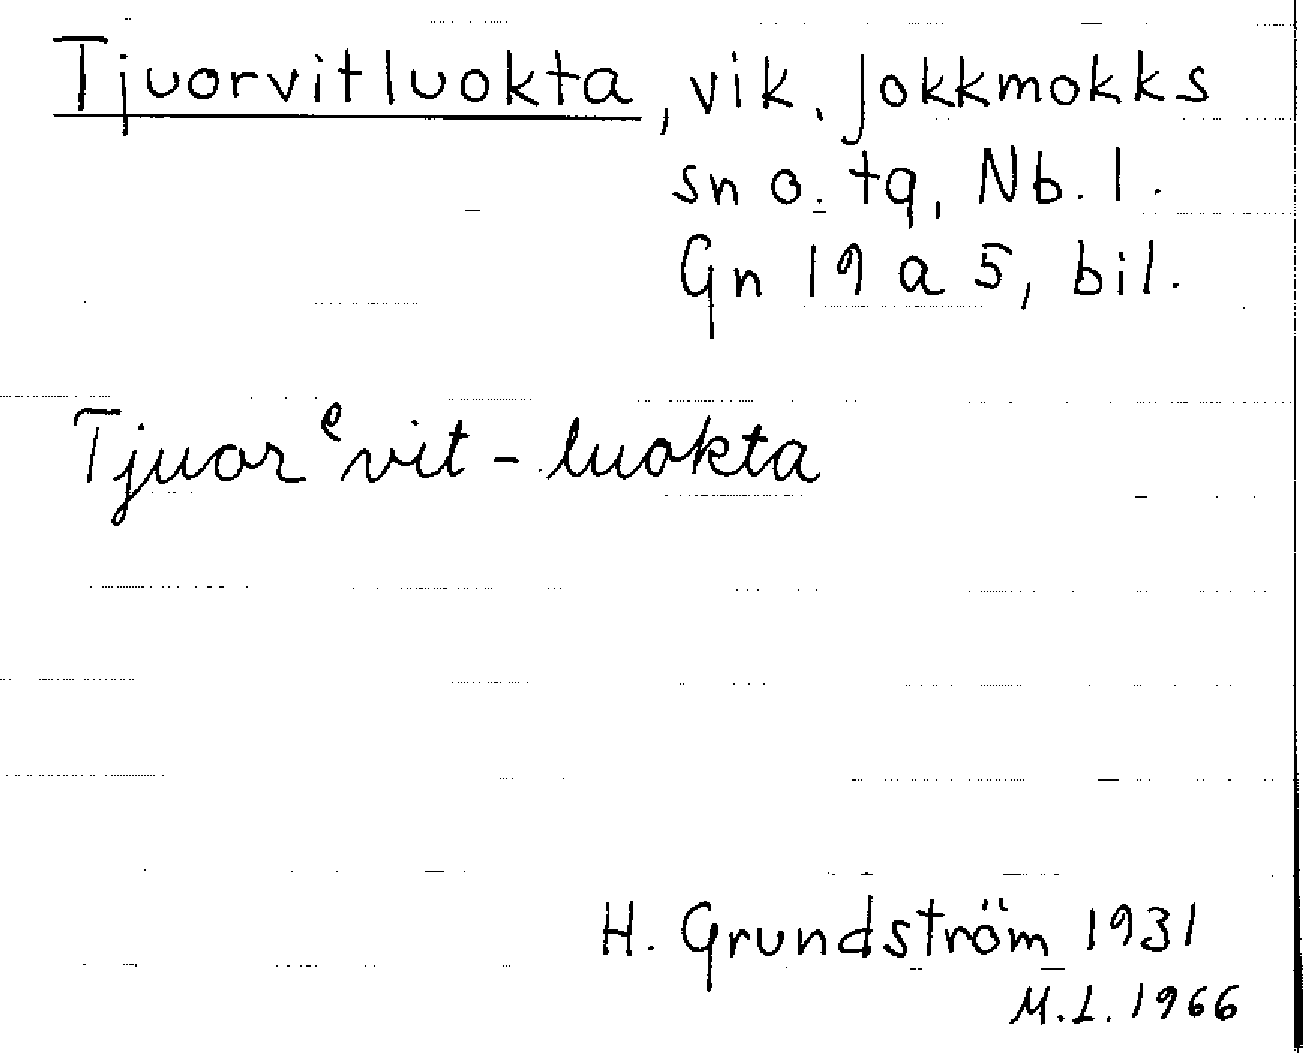 Tjuorvitluokta, vik. Jokkmokks
sn o. tg, Nb. l.
Gn 19 a 5, bil.
Tjuorᵉvit-luokta
H. Grundström 1931
M.L. 1966